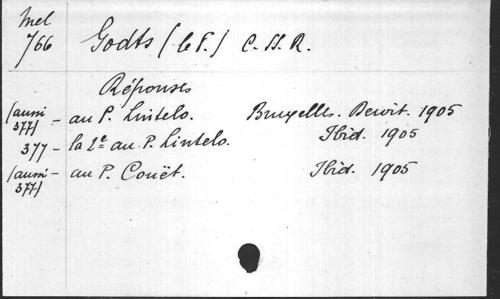 Mel
766
Godts (le P.) C. SS. R.
Réponses
(aussi 377) - au P. Lintelo. Bruxelles. Dewit. 1905
377 - la 2e au P. Lintelo. Ibid. 1905
(aussi 377) - au P. Couët. Ibid. 1905